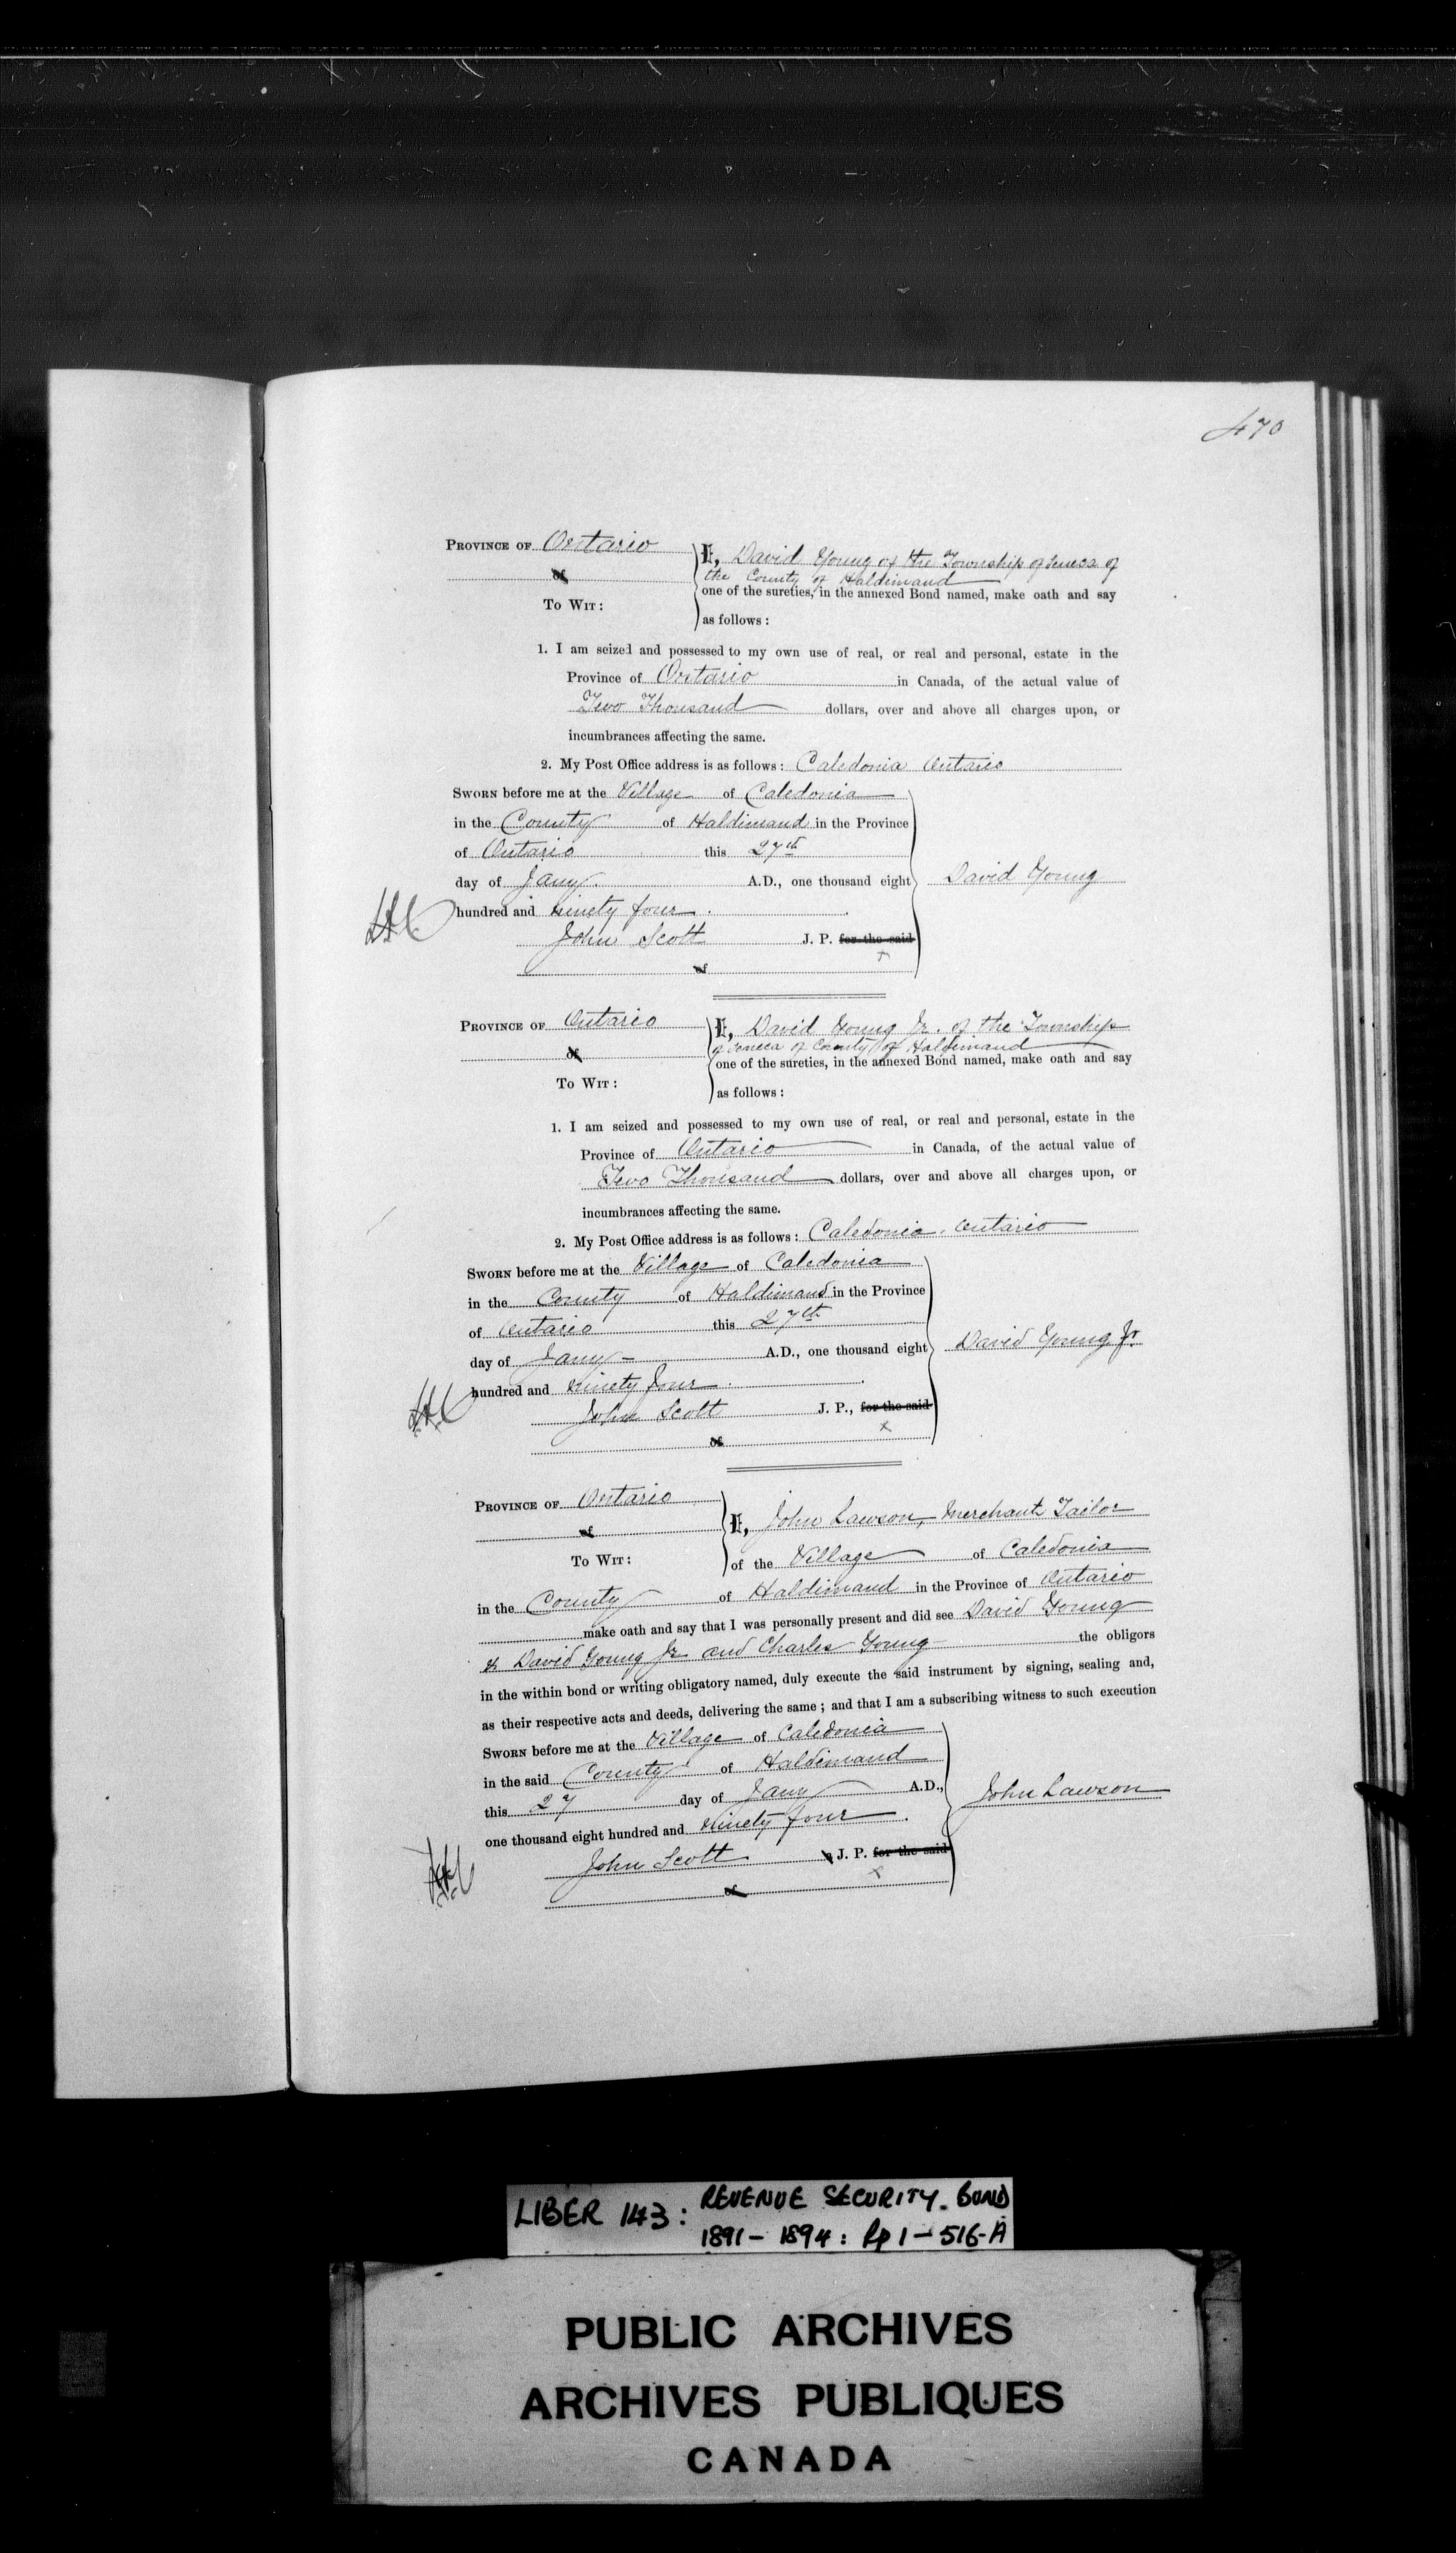 470
PROVINCE OF Ontario
I, David Young of the Township of Seneca of
the County of Haldimand
of
one of the sureties, in the annexed Bond named, make oath and say
TO WIT:
as follows:
1. I am seized and possessed to my own use of real, or real and personal, estate in the
Province of Ontario in Canada, of the actual value of
Two Thousand dollars, over and above all charges upon, or
incumbrances affecting the same.
2. My Post Office address is as follows: Caledonia Ontario
SWORN before me at the Village of Caledonia
in the County of Haldimand in the Province
of Ontario this 27th
day of Jany. A.D., one thousand eight David Young
hundred and ninety four.
John Scott J. P. for the said
of
PROVINCE OF Ontario
I, David Young Jr. of the Township
of Seneca of County of Haldimand
of
one of the sureties, in the annexed Bond named, make oath and say
TO WIT:
as follows:
1. I am seized and possessed to my own use of real, or real and personal, estate in the
Province of Ontario in Canada, of the actual value of
Two Thousand dollars, over and above all charges upon, or
incumbrances affecting the same.
2. My Post Office address is as follows: Caledonia. Ontario
SWORN before me at the Village of Caledonia
in the County of Haldimand in the Province
of Ontario this 27th
day of Jany A.D., one thousand eight David Young Jr.
hundred and ninety four.
John Scott J. P., for the said
of
PROVINCE OF Ontario
I, John Lawson, Merchant Tailor
of
TO WIT: of the Village of Caledonia
in the County of Haldimand in the Province of Ontario
make oath and say that I was personally present and did see David Young
& David Young Jr. and Charles Young the obligors
in the within bond or writing obligatory named, duly execute the said instrument by signing, sealing and,
as their respective acts and deeds, delivering the same; and that I am a subscribing witness to such execution
SWORN before me at the Village of Caledonia
in the said County of Haldimand
this 27 day of Jany A.D., John Lawson
one thousand eight hundred and ninety four.
John Scott a J. P. for the said
of
LIBER 143: REVENUE SECURITY. BOND
1891 - 1894: Pp 1 - 516-A
PUBLIC ARCHIVES
ARCHIVES PUBLIQUES
CANADA